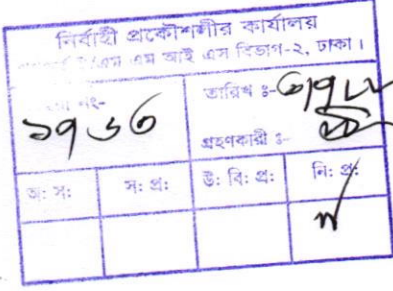 নির্বাহী প্রকৌশলীর কার্যালয়
ই/এম এম আই এস বিভাগ-২, ঢাকা।
নং- তারিখ ঃ-
১৭৬৩
গ্রহণকারী ঃ-
অ: স: স: প্র: উ: বি: প্র: নি: প্র: